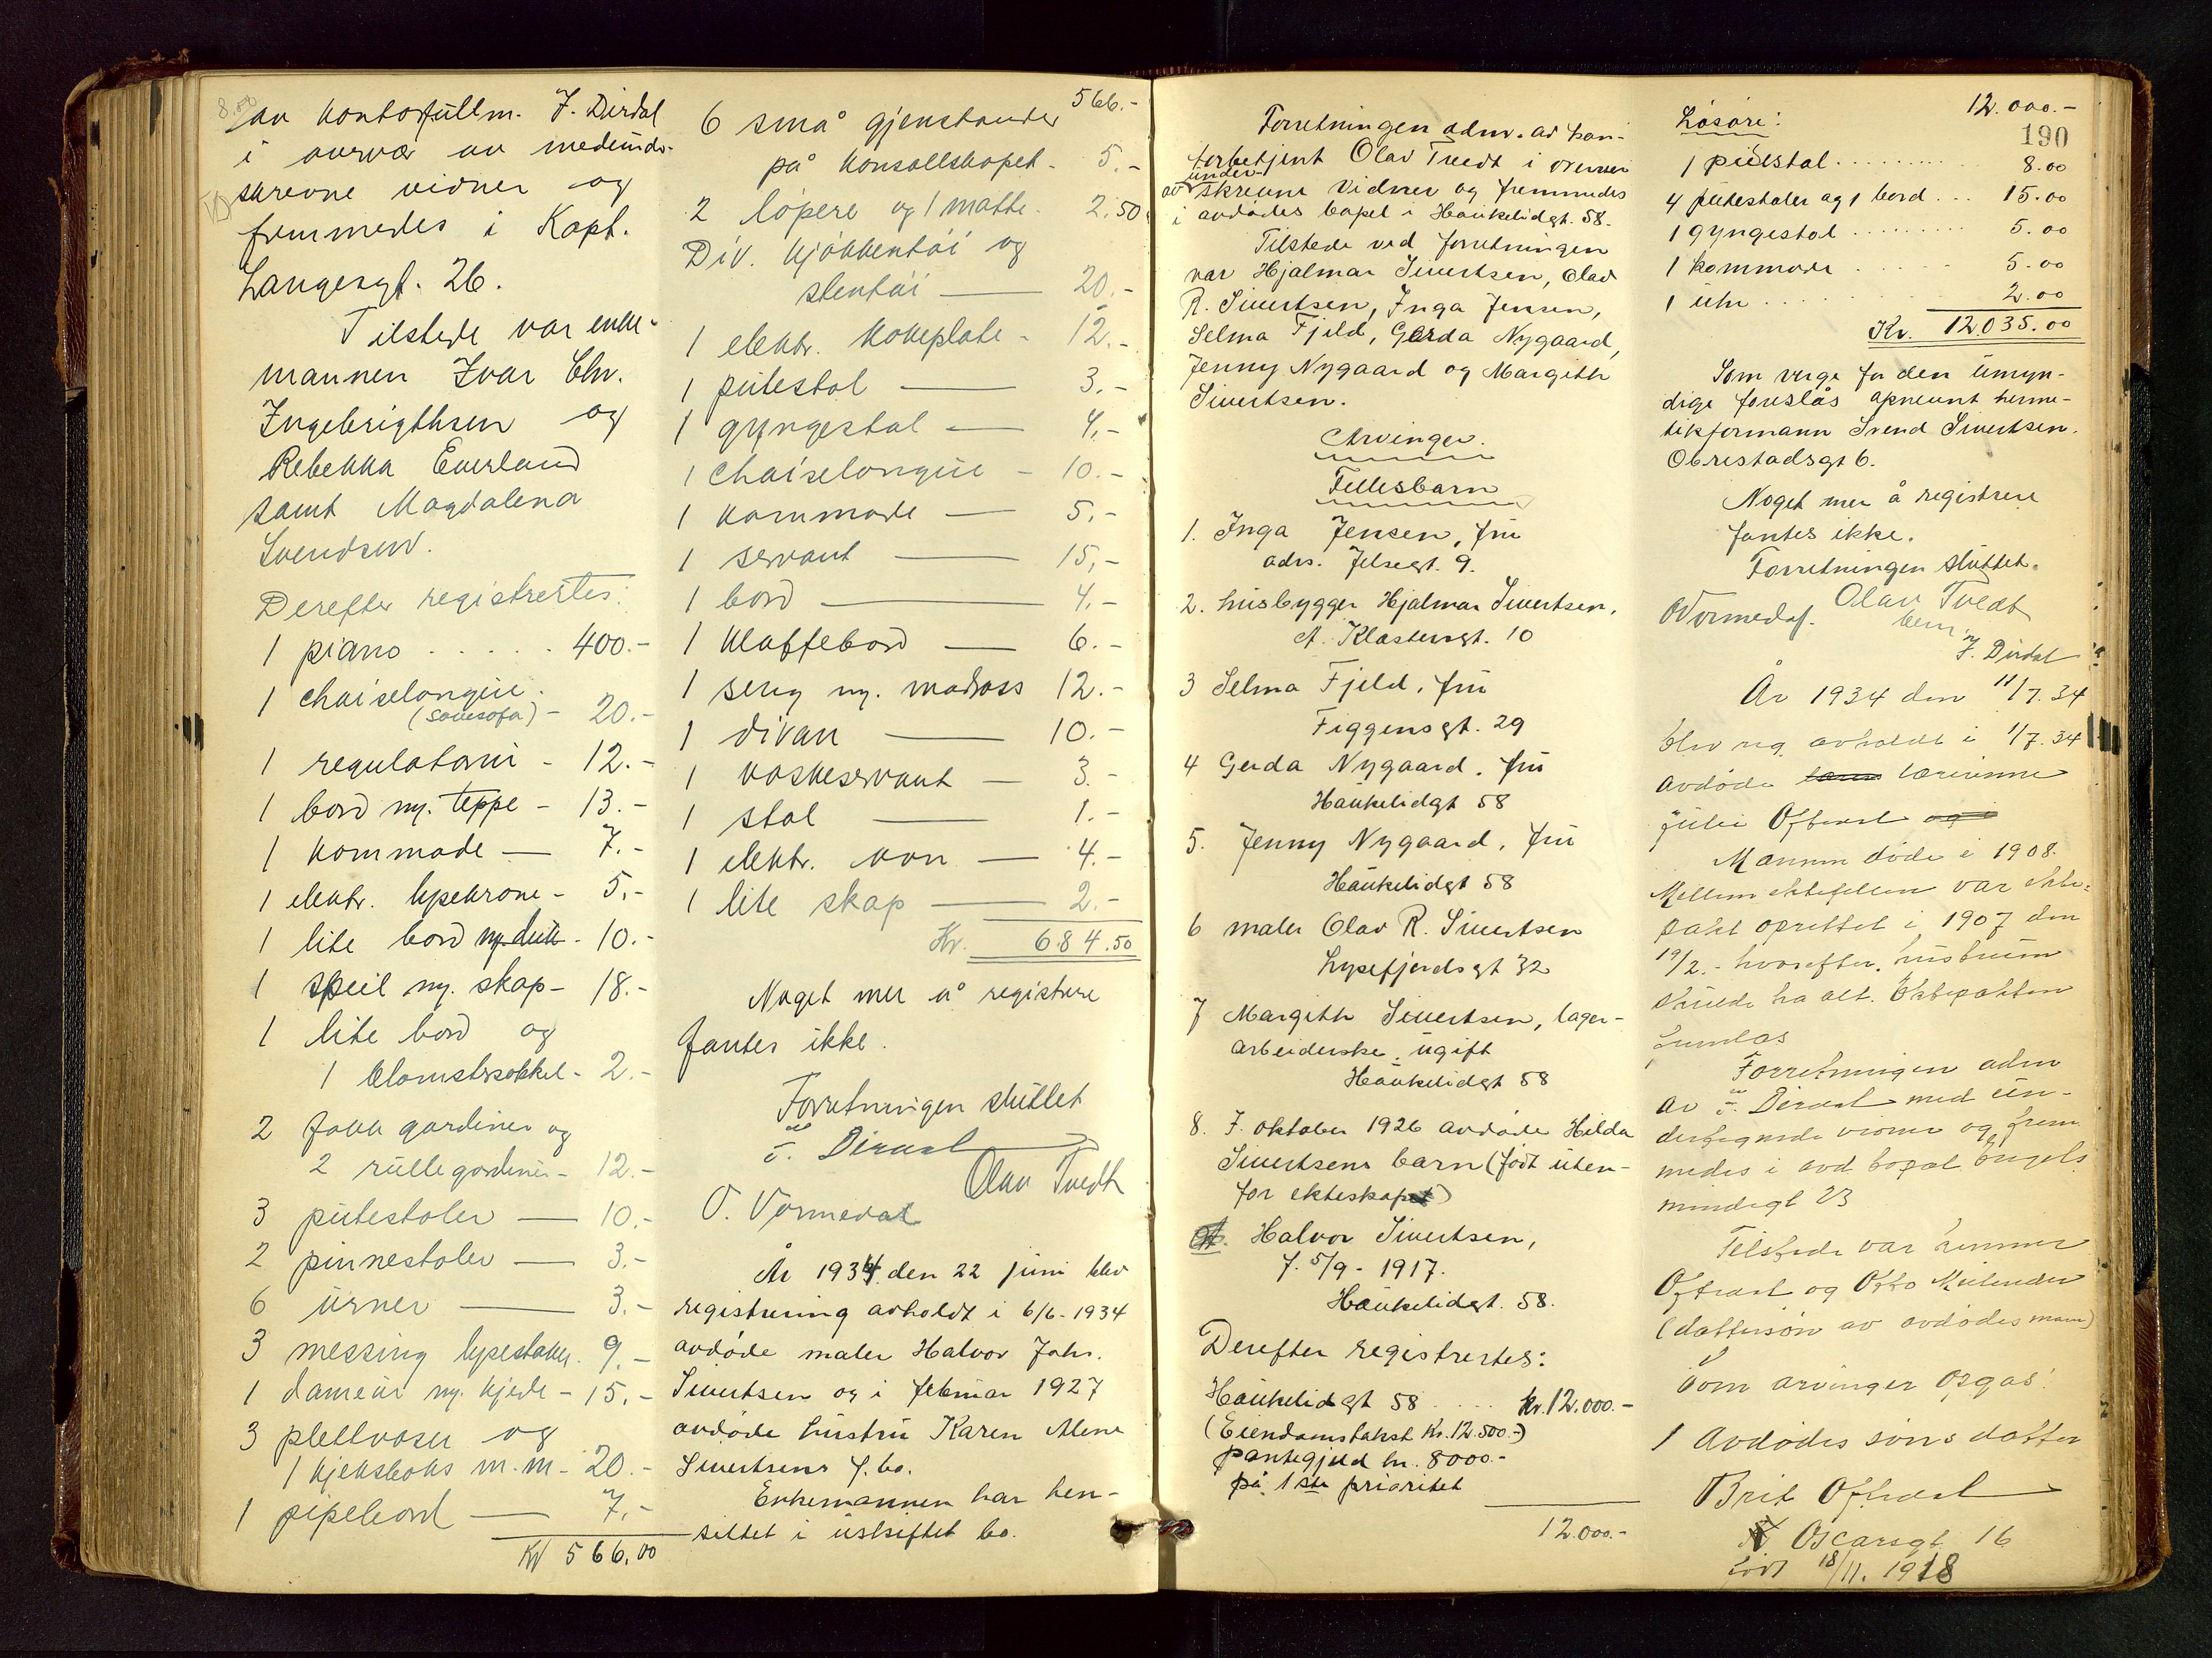 av kontorfullm. J. Dirdal
i overvær av medunder-
skrevne vidner og
fremmedes i Kapt.
Langesgt. 26.
Tilstede var enke-
mannen Ivar Chr.
Ingebrigthsen og
Rebekka Everland
samt Magdalena
Svendsen.
Derefter registrertes:
1 piano . . . . . 400.-
1 chaiselongue.
(Sovesofa) - 20.-
1 regulatorur - 12.-
1 bord m. teppe - 13.-
1 kommode — 7.-
1 elektr. lysekrone - 5.-
1 lite bord m. duk - 10.-
1 speil m. skap - 18.-
1 lite bord og
1 blomstersokkel - 2.-
2 fakk gardiner og
2 rullegardiner - 12.-
3 putestoler — 10.-
2 pinnestoler — 3.-
6 urner — 3.-
3 messing lysestaker. 9.-
1 dameur m. kjede - 15.-
3 plettvaser og
1 kjeksboks m.m. - 20.-
1 pipebord — 7.-
Kr 566.00
566.-
6 små gjenstander
på konsollskapet - 5.-
2 løpere og 1 matte - 2.50
Div. kjøkkentøi og
stentøi — 20.-
1 elektr. kokeplate - 12.-
1 putestol — 3.-
1 gyngestol — 4.-
1 chaiselongue - 10.-
1 kommode — 5.-
1 servant — 15.-
1 bord — 4.-
1 klaffebord — 6.-
1 seng m. madrass 12.-
1 divan — 10.-
1 vaskeservant — 3.-
1 stol — 1.-
1 elektr. ovn — 4.-
1 lite skap — 2.-
Kr. 684.50
Noget mer å registrere
fantes ikke.
Forretningen sluttet
J. Dirdal
Olav Tvedt
O. Vormedal
År 1934 den 22 juni blev
registrering avholdt i 6/6-1934
avdøde maler Halvor Johs.
Sivertsen og i februar 1927
avdøde hustru Karen Alene
Sivertsens f. bo.
Enkemannen har hen-
sittet i uskiftet bo.
Forretningen adm. av kon-
torbetjent Olav Tvedt i overvær
av underskrevne vidner og fremmedes
i avdødes bopel i Haukelidgt. 58.
Tilstede ved forretningen
var Hjalmar Sivertsen, Olav
R. Sivertsen, Inga Jensen,
Selma Fjeld, Gerda Nygaard,
Jenny Nygaard og Margith
Sivertsen.
Arvinger.
Fellesbarn
1. Inga Jensen, fru
adrs. Jelsegt. 9.
2. husbygger Hjalmar Sivertsen,
A. Klostersgt. 10
3 Selma Fjeld, fru
Figgensgt. 29
4 Gerda Nygaard, fru
Haukelidgt 58
5. Jenny Nygaard, fru
Haukelidgt 58
6 maler Olav R. Sivertsen
Lysefjordsgt 32
7 Margith Sivertsen, lager-
arbeiderske, ugift
Haukelidgt 58
8. I. oktober 1926 avdøde Hilda
Sivertsens barn (født uten-
for ekteskapet)
Halvor Sivertsen,
f. 5/9 - 1917.
Haukelidgt. 58.
Derefter registrertes:
Haukelidgt 58 . . . . kr. 12.000.-
(Eiendomstakst Kr. 12.500.-)
pantegjeld kr. 8000.-
på 1ste prioritet
12.000.-
12.000.-
190
Løsøre:
1 puiestol . . . . . 8.00
4 putestoler og 1 bord . . . 15.00
1 gyngestol . . . . . 5.00
1 kommode . . . . . 5.00
1 uhr . . . . . 2.00
Kr. 12.035.00
Som verge for den umyn-
dige foreslås opnevnt herme-
tikkformann Svend Sivertsen.
Obrestadsgt 6.
Noget mer å registrere
fantes ikke.
Forretningen sluttet.
Olav Tvedt
OVormedal.
J. Dirdal
År 1934 den 11/7. 34
blev reg. avholdt i 1/7. 34
avdøde lærerinne
Julie Oftedal
Mannen døde i 1908.
Mellem ektefellene var ekte-
pakt oprettet i 1907 den
19/2. - hvorefter hustruen
skulde ha alt. Ektepakten
fremlas
Forretningen adm
av J. Dirdal med un-
dertegnede vidner og frem
medes i avd bopæl Engels
mindegt 23
Tilstede var
Oftedal og Otto
(dattersøn av avdødes mann)
Som arvinger opgas:
1 Avdødes sønsdatter
Brit Oftedal
Oscarsgt 16
født 18/11. 1918